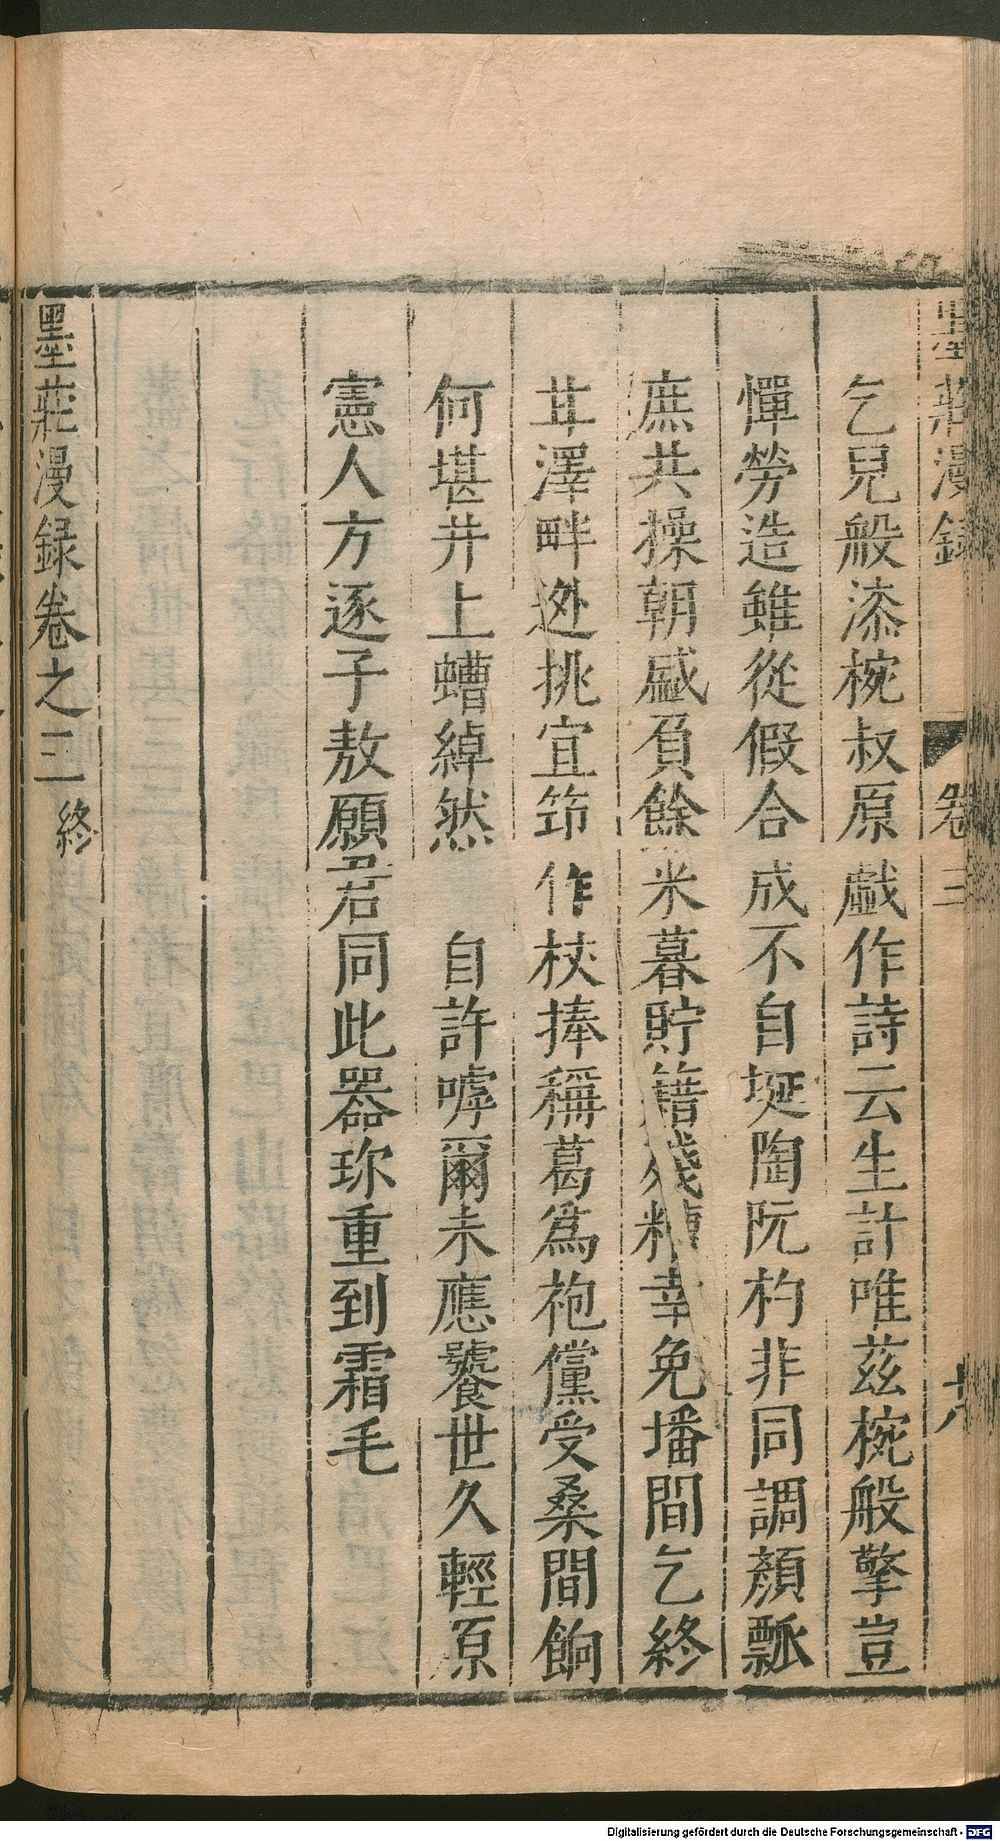 墨莊漫録 卷三
乞兒般漆椀叔原戲作詩云生計唯茲椀般擎豈
憚勞造雖從假合成不自埏陶阮杓非同調顏瓢
庶共操朝盛負餘米暮貯籍殘糟幸免墦間乞終
甘澤畔迯挑宜筇作杖捧稱葛爲袍儻受桑間餉
何堪井上螬綽然 自許嘑爾未應饕世久輕原
憲人方逐子敖願君同此器珍重到霜毛
墨莊漫録卷之三 終
Digitalisierung gefördert durch die Deutsche Forschungsgemeinschaft - DFG